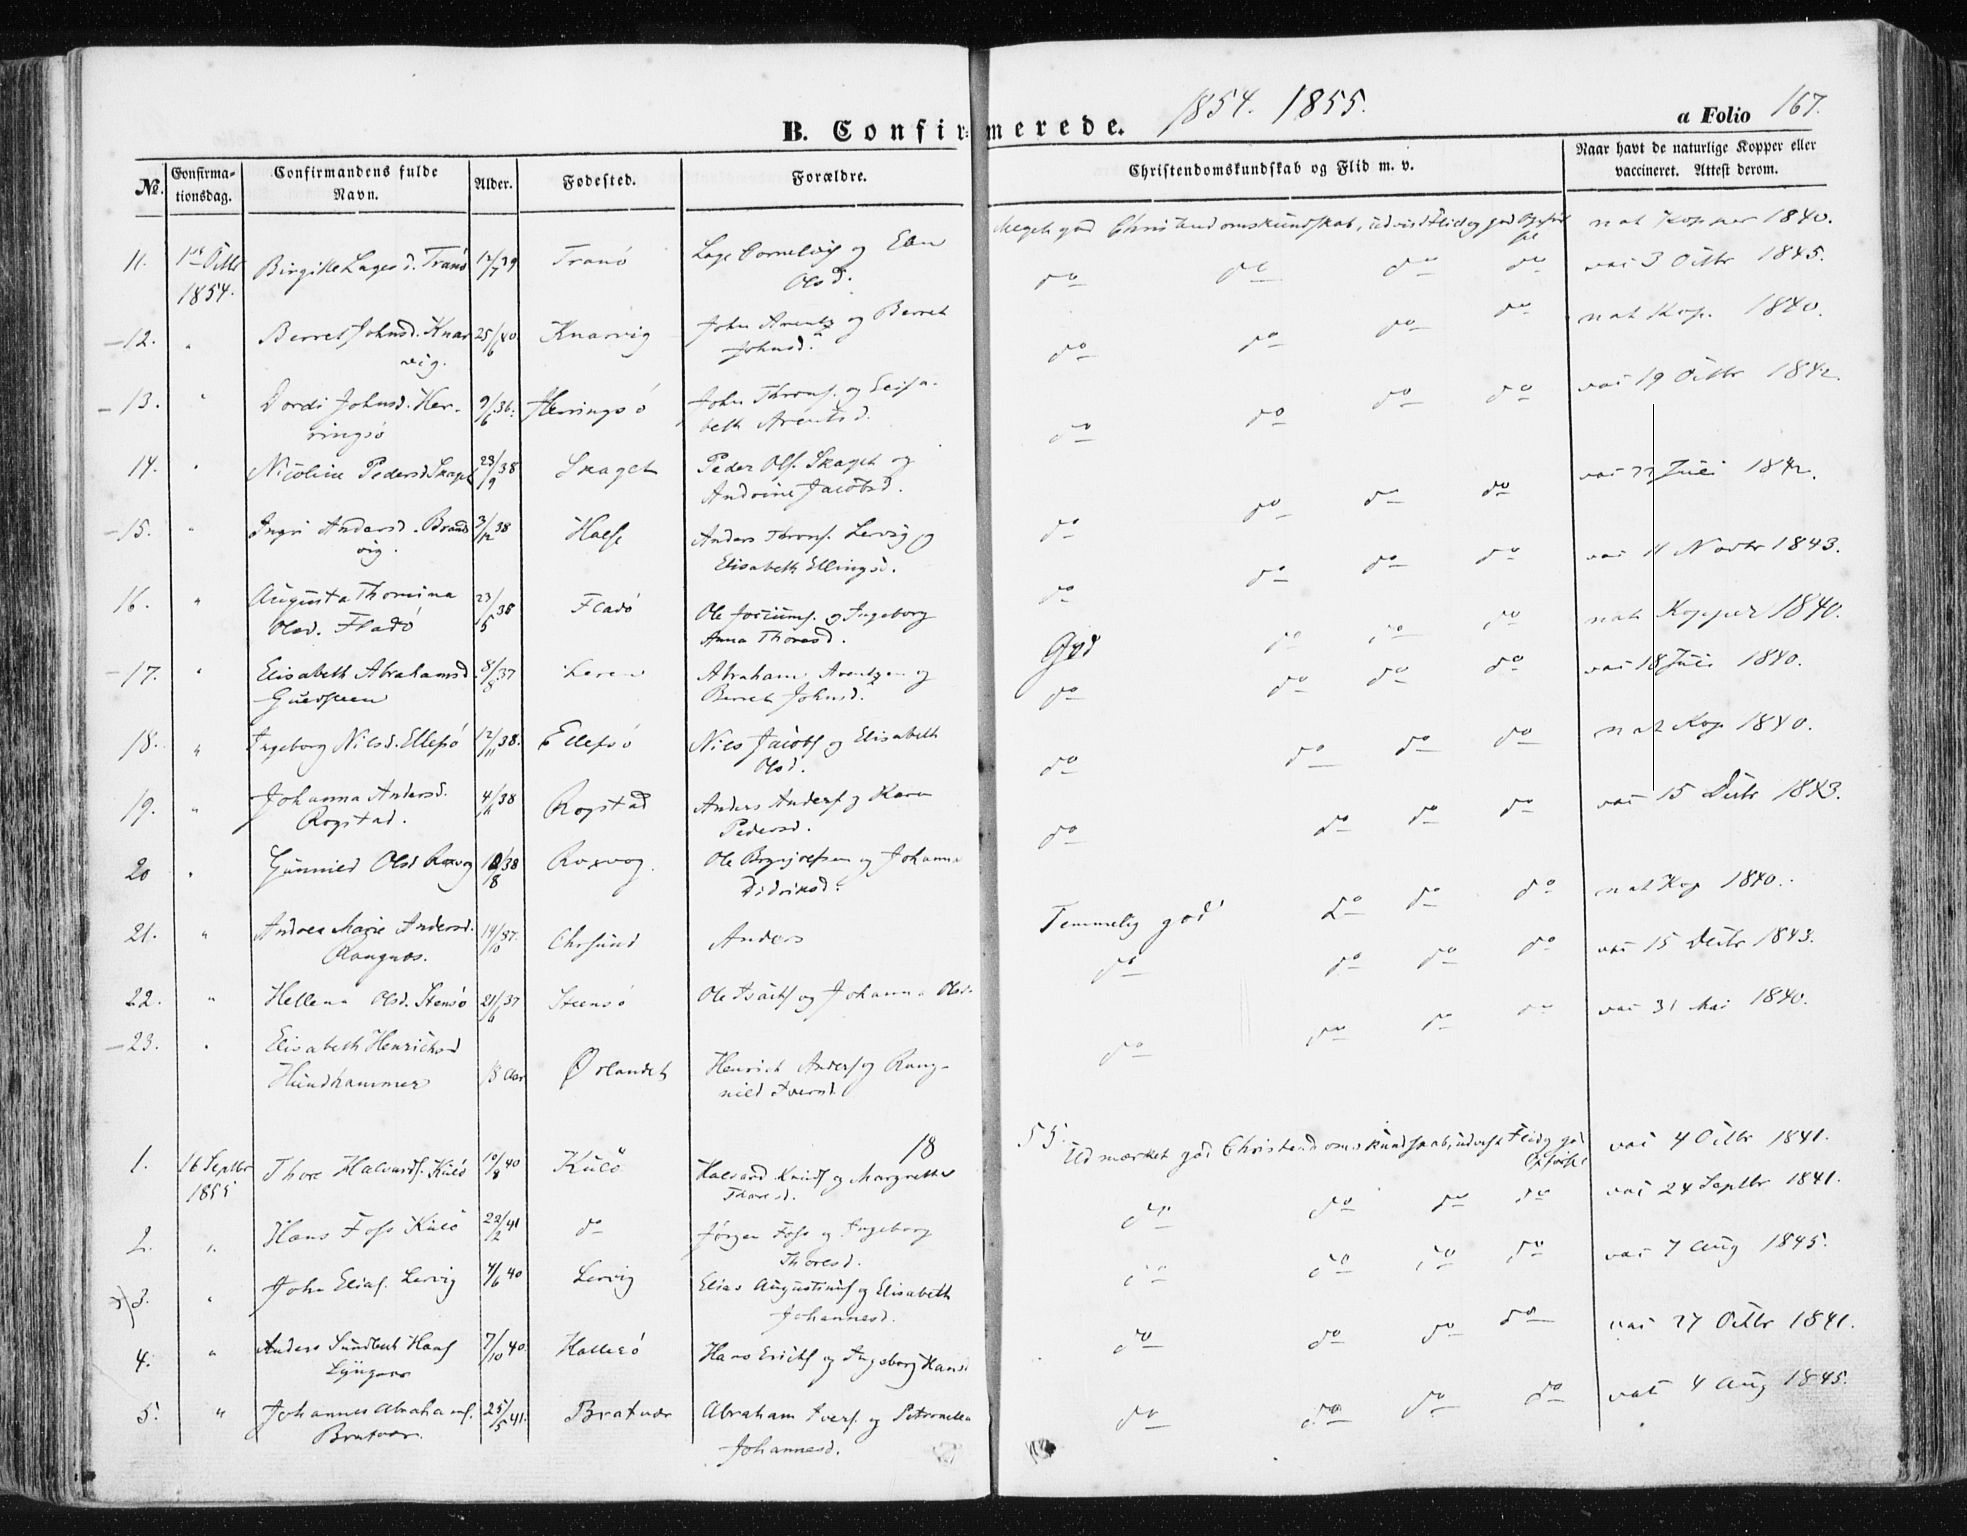 1854. 1855.
B. Confirmerede.
a Folio 167.
No. Confirmationsdag. Confirmandens fulde Navn. Alder. Fødested. Forældre. Christendomskundskab og Flid m. v. Naar havt de naturlige Kopper eller vaccineret. Attest derom.
Meget god Christendomskundskab, udvist Flid og god Opførsel nat Kopper 1840.
11. 1ste Octbr 1854. Birgitte Lagesd. Tranö 12/7 39 Tranö Lage Cornelius og Elen Olsd. do do do do vac 3 Octbr 1845.
12. " Berret Johnsd. Knarvig. 25/6 40 Knarvig John Arentz og Berret Johnsd. do do do do nat Kop. 1840.
13. " Dordi Johnsd. Herringsö 9/6 36. Herringsö John Throns. og Elisabeth Arentsd. do do do do vac 19 Octbr 1842.
14. " Nicoline Pedersd Skaget 23/9 38 Skaget Peder Ols. Skaget og Andrine Jacobsd. do do do do vac 22 Juli 1842.
15. " Ingri Andersd. Brandvig. 3/12 38 Halse Anders Throns. Lervig og Elisabeth Ellingsd. do do do do vac 11 Novbr 1843.
16. " Augusta Thomina Olsd. Fladö 23/5 38 Fladö Ole Jociums. og Ingeborg Anna Thoresd. God do do do nat Kopper 1840.
17. " Elisabeth Abrahamsd 8/8 37 Abraham Arentzen og Berret Johnsd. do do do do vac 18 Juli 1840.
18. " Ingeborg Nilsd. Ellefsö 12/11 38. Ellefsö Nils Jacobs og Elisabeth Olsd. do do do do nat Kop 1840.
19. " Johanna Andersd. Rogstad. 4/11 38 Rogstad Anders Anders og Karen Pedersd. do do do do vac 15 Octbr 1843.
20 " Gunnild Olsd Roxvog 18/8 38 Roxvog. Ole og Johanna Didriksd. Temmelig god do do do nat Kop 1840.
21. " Andrea Marie Andersd. Rangnæs. 14/10 37. Chrsund Anders do do do do vac 15 Octbr 1843.
22. " Hellena Olsd. Stensö 21/6 37 Steensö Ole Isacs og Johanna Olsd. do do do do vac 31 Mai 1840.
23. " Elisabeth Henrichsd Hundhammer 18 Aar Ørlandet Henrich Anders og Rangnild Iversd.
1855.
1. 16 Septbr 1855 Thore Halvards. Kulö 10/8 40 Kulö Halvard Knuds og Margrethe Thoresd. Udmærket god Christendomskundskab, udvist Flid og god Opførsel vac 4 Octbr 1841.
2. " Hans Foss Kulö 22/2 41 do Jørgen Foss og Ingeborg Thoresd. do do do do vac 24 Septbr 1841.
3. " John Elias. Lervig 4/6 40 Lervig Elias Augustinus og Elisabeth Johannesd. do do do do vac 7 Aug 1845.
4. " Anders Sundbert Haas 7/10 40 Hallerö Hans Erichs og Ingeborg Hansd do do do do vac 27 Octbr 1841.
5. " Johannes Abrahams. Bratvær. 25/5 41. Bratvær Abraham Ivers. og Petronella Johannesd. do do do do vac 4 Aug 1845.